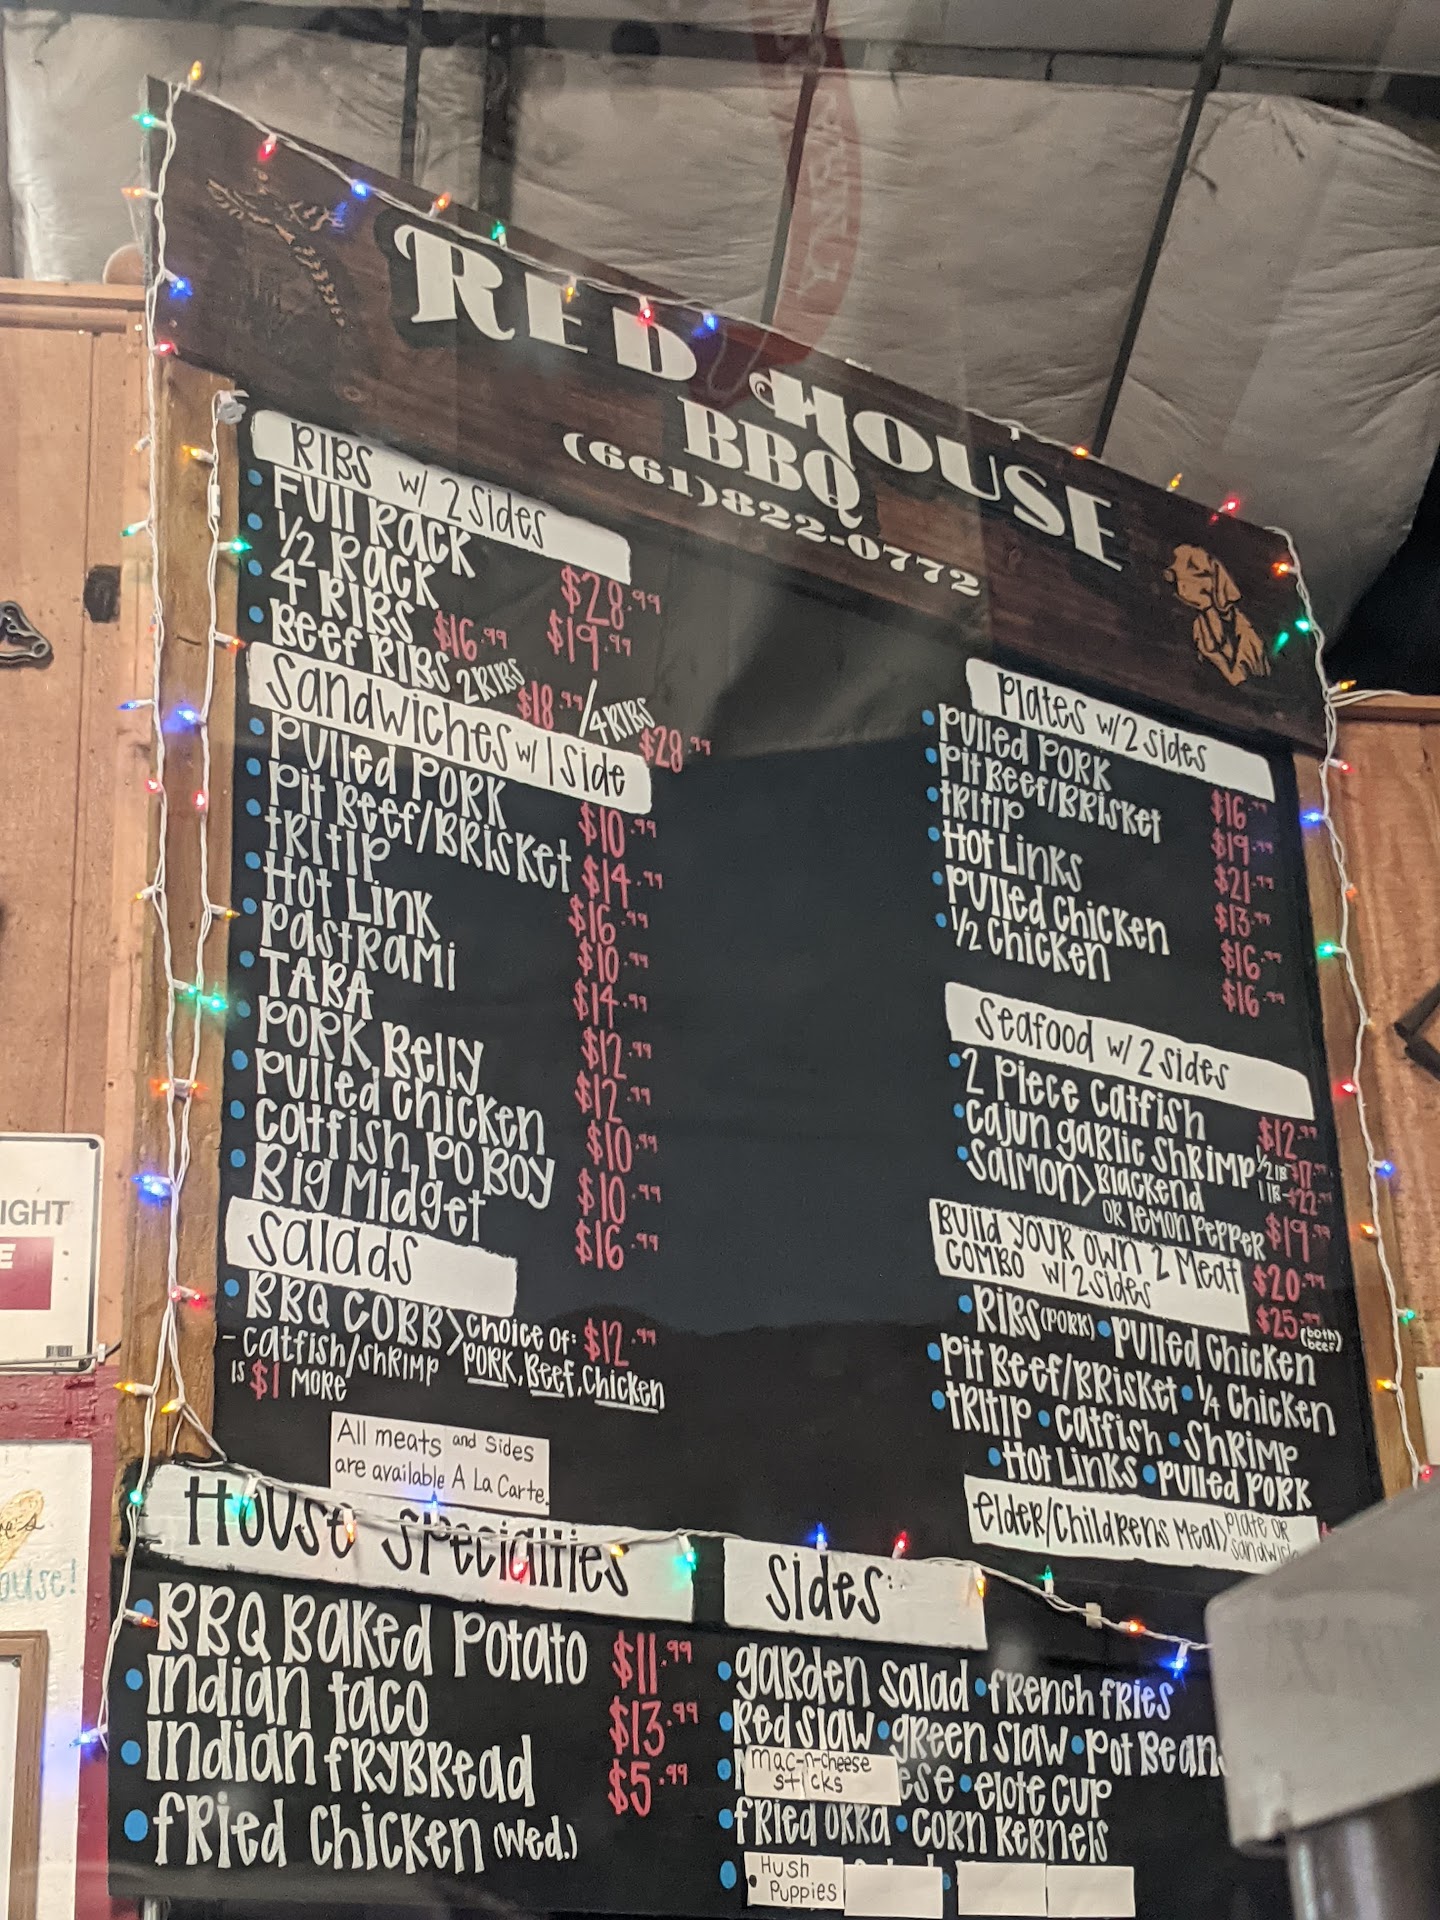 RED HOUSE
BBQ
(661)822-0772
RIBS w/ 2 Sides
Full Rack $28.99
1/2 Rack $19.99
4 RIBS $16.99
Beef RIBS 2 RIBS $18.99 / 4 RIBS $28.99
Sandwiches w/ 1 Side
Pulled Pork $10.99
Pit Beef/Brisket $14.99
tRitip $16.99
Hot Link $10.99
PastRami $14.99
TABA $12.99
PORK Belly $12.99
Pulled Chicken $10.99
Catfish PO BOY $10.99
Big Midget $16.99
Salads
BBQ COBB > Choice of: $12.99
PORK, Beef, Chicken
- Catfish/Shrimp
is $1 more
All meats and Sides
are available A La Carte.
Plates w/ 2 sides
Pulled Pork $16.99
Pit Beef/Brisket $19.99
tRitip $21.99
Hot Links $13.99
Pulled Chicken $16.99
1/2 Chicken $16.99
Seafood w/ 2 sides
2 Piece Catfish $12.99
Cajun garlic Shrimp 1/2 lB $17.99
1 lB $22.99
Salmon > Blackend
OR lemon Pepper $19.99
Build your own 2 Meat $20.99
COMBO w/ 2 Sides $25.99 (both beef)
RIBS (PORK) • Pulled Chicken
Pit Beef/Brisket • 1/4 Chicken
tRitip • Catfish • Shrimp
Hot Links • Pulled PORK
elder/Childrens Meal > Plate or
Sandwich
House Specialties
BBQ Baked Potato $11.99
Indian taco $13.99
Indian fryBread $5.99
fried Chicken (Wed.)
Sides:
garden Salad • french fries
Red Slaw • green Slaw • Pot Bean
mac-n-cheese
sticks
ese • elote cup
fried okra • corn kernels
• Hush
Puppies
IGHT
E
ouse!